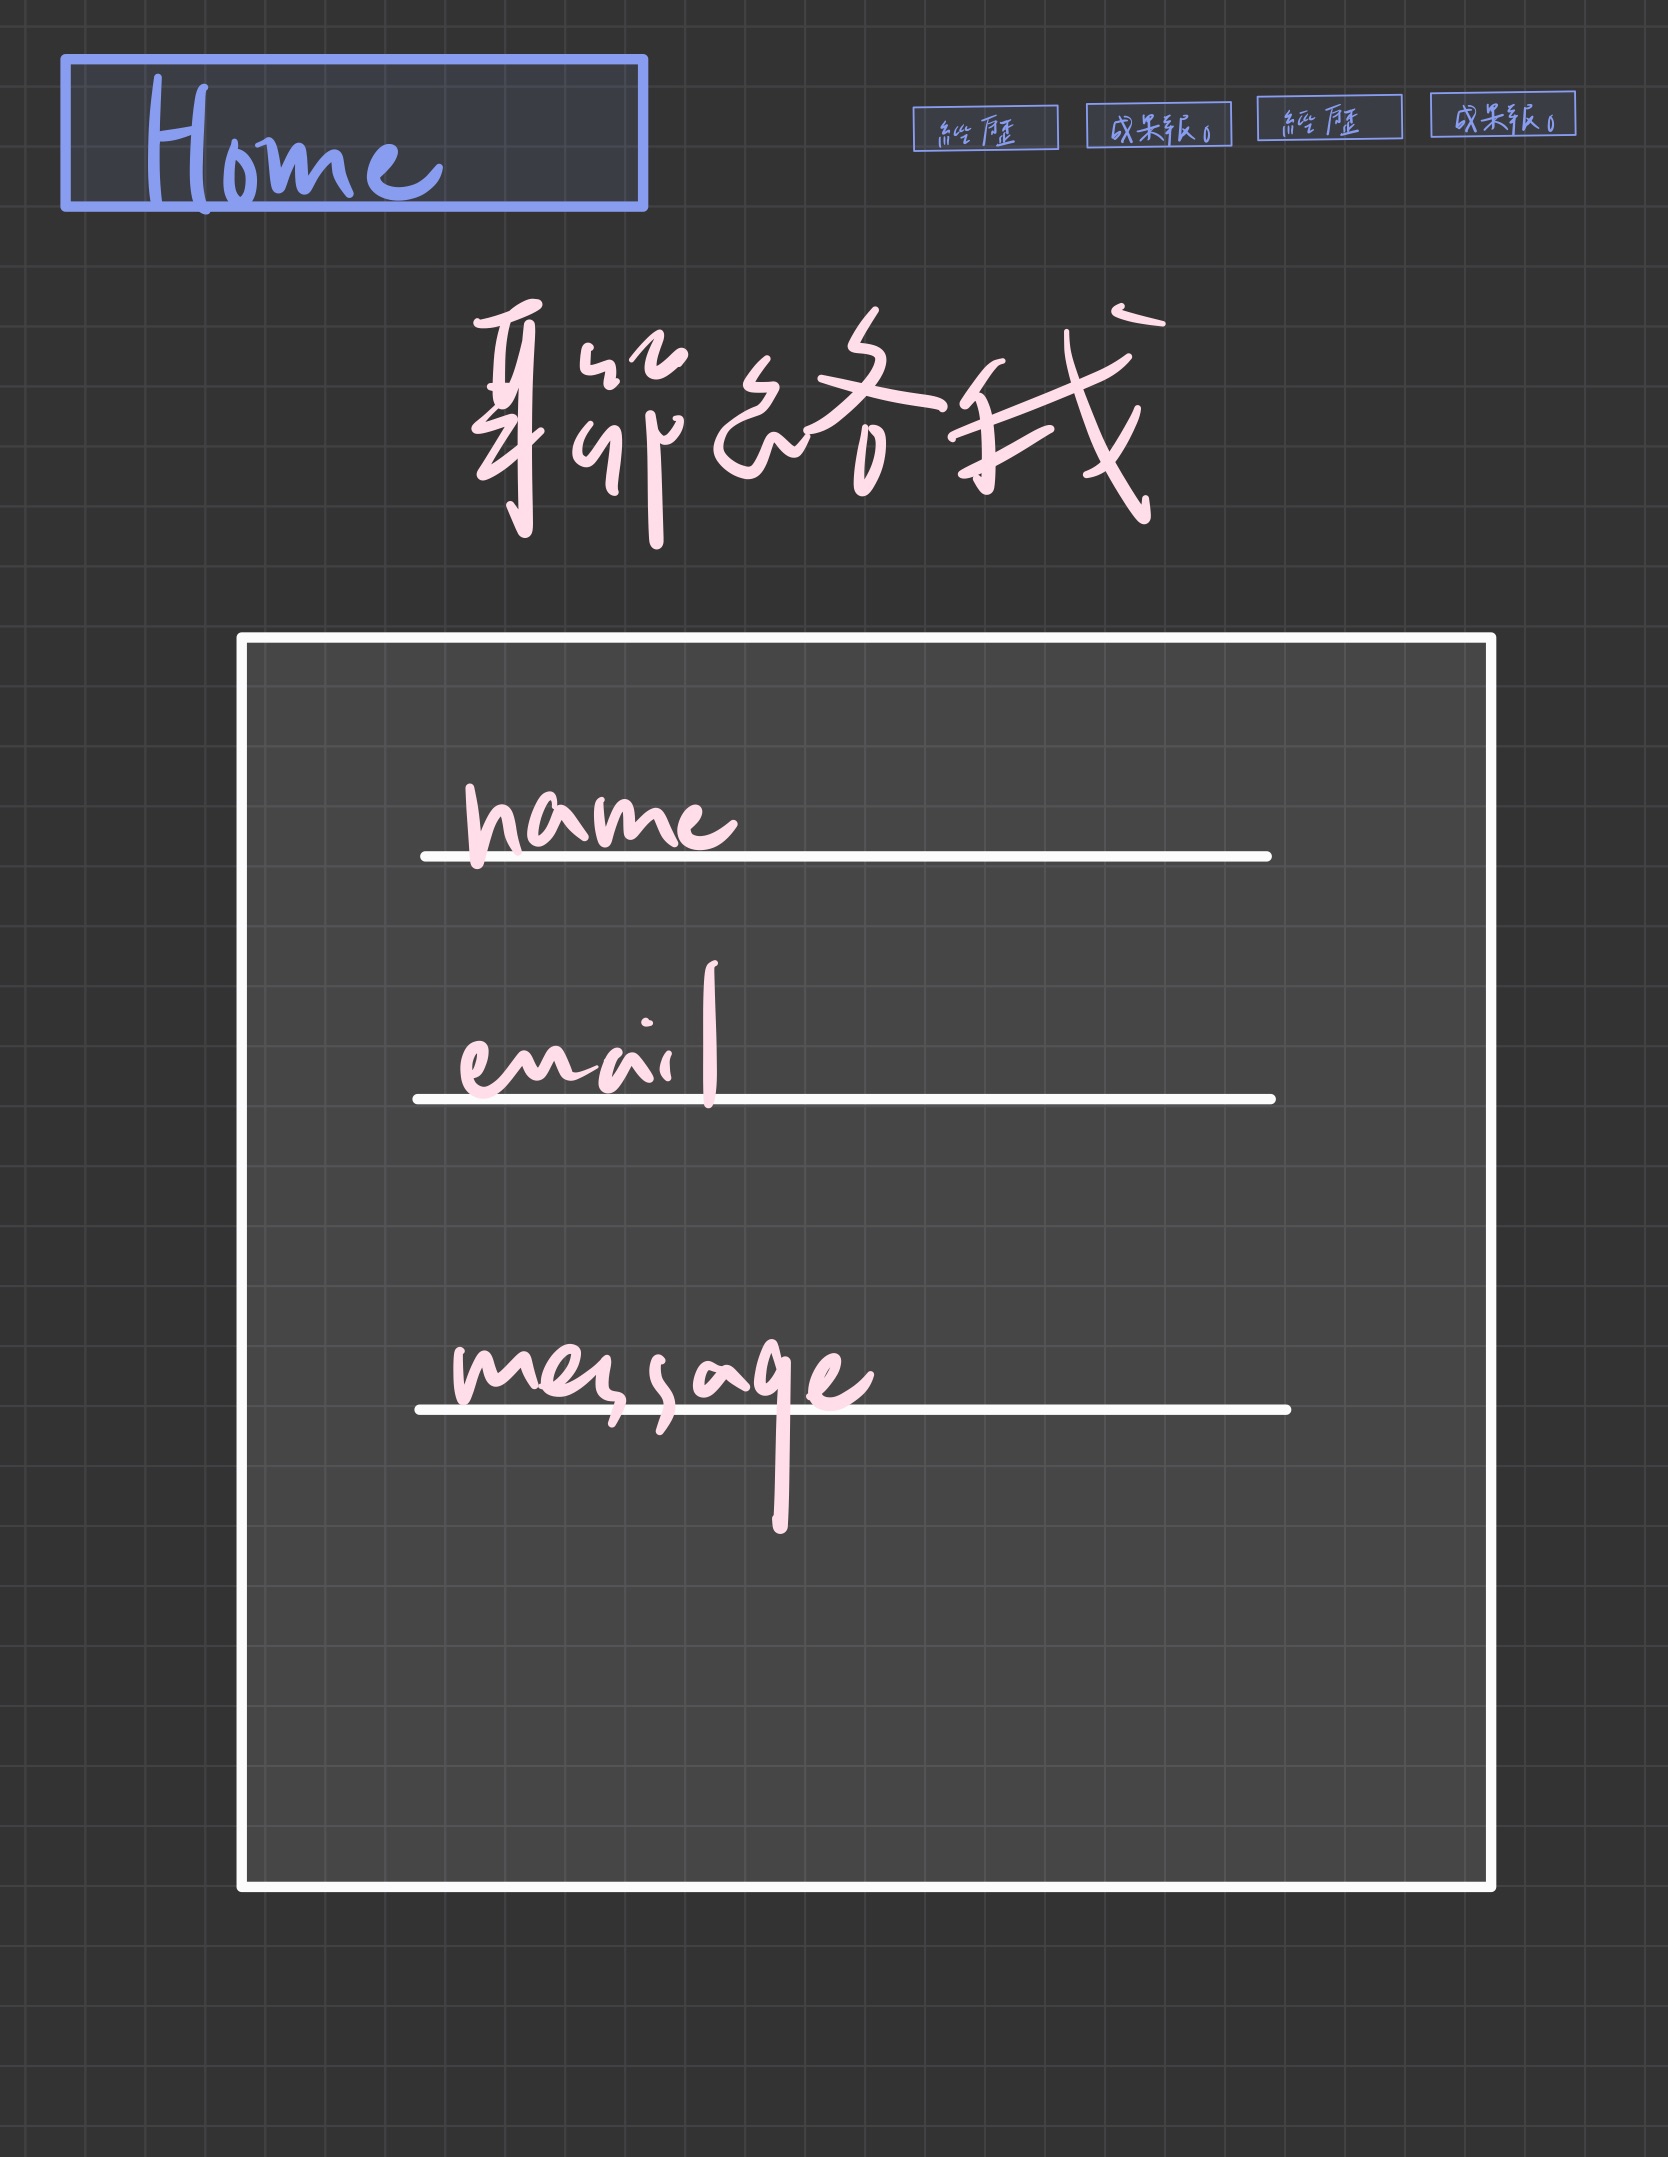 Home
經歷 成果報。 經歷 成果報。
聯絡我
name
email
message